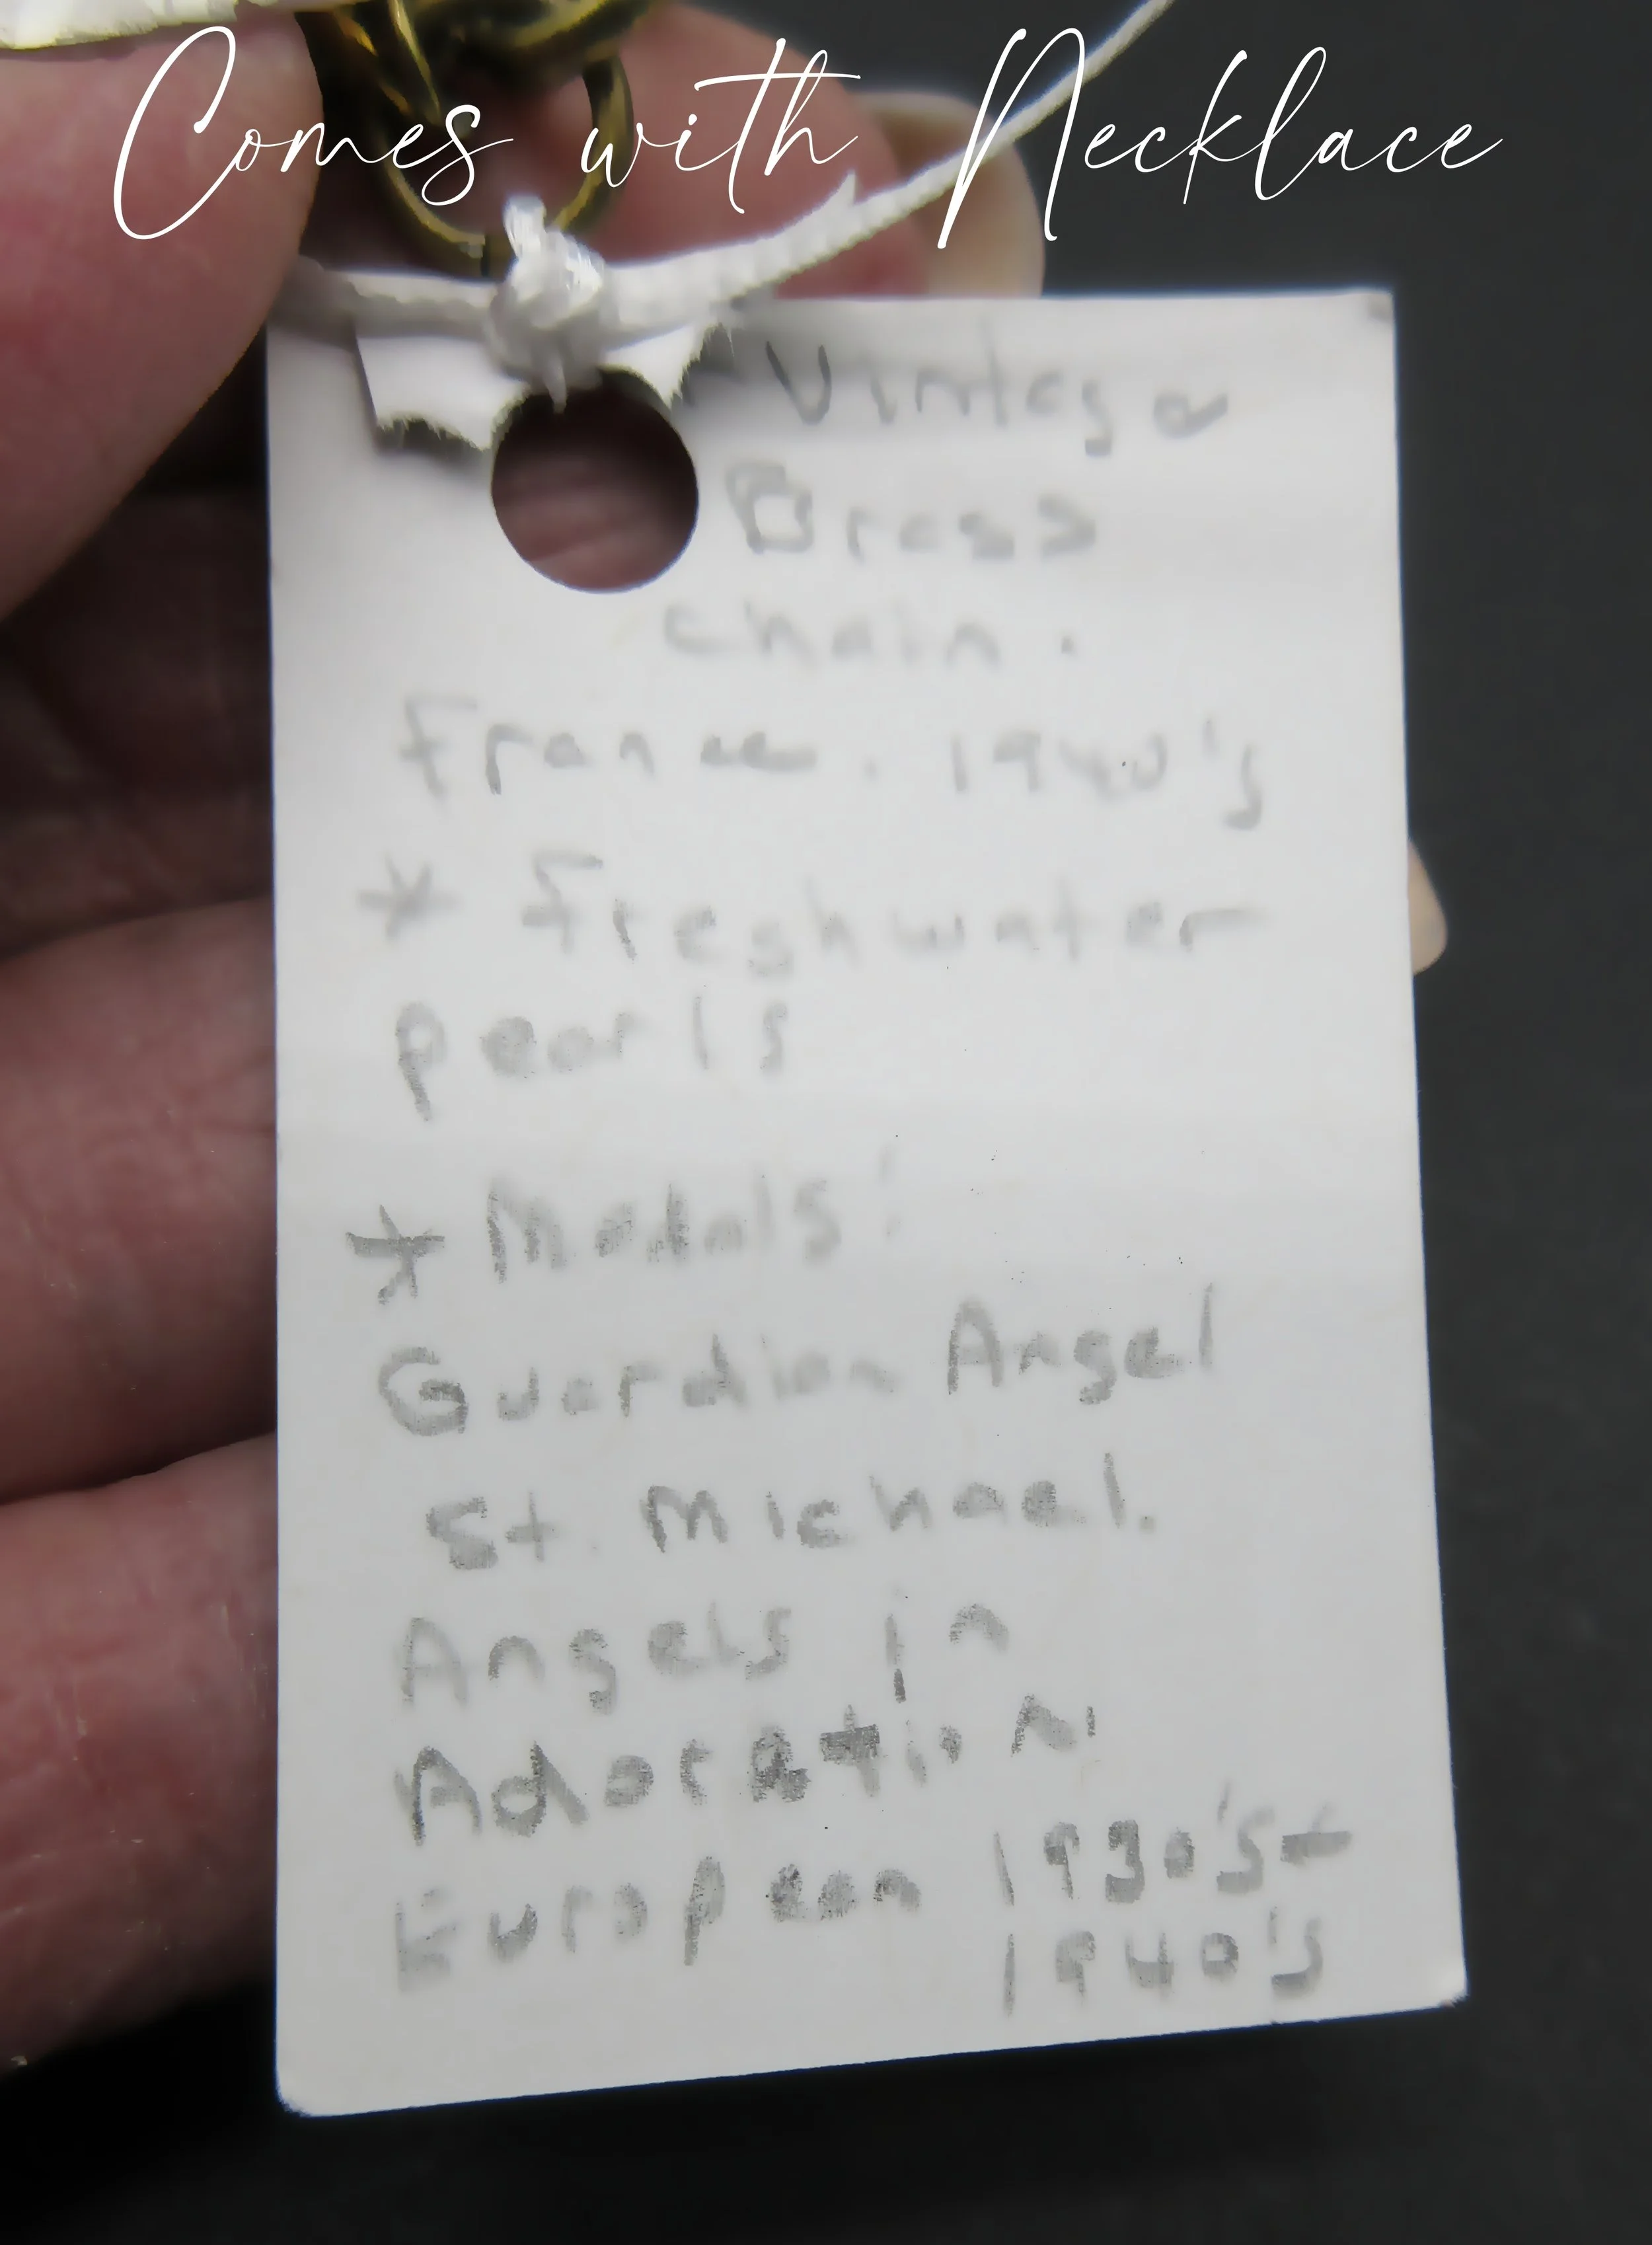 Comes with Necklace
Vintage
Brass
chain.
France. 1940's
* Freshwater
pearls
* Medals:
Guardian Angel
St. Michael.
Angels in
Adoration
European 1930's+
1940's